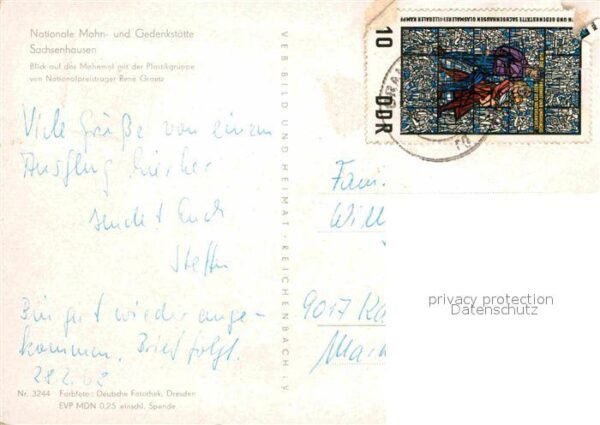 Nationale Mahn- und Gedenkstätte
Sachsenhausen
Blick auf das Mahnmal mit der Plastikgruppe
von Nationalpreisträger René Graetz
Viele Grüße von einem
Ausflug hierher
sendet Euch
Steffen
Bin gut wieder ange-
kommen. Brief folgt.
28.2.68
Nr. 3244 Farbfoto: Deutsche Fotothek, Dresden
EVP MDN 0,25 einschl. Spende
VEB BILD UND HEIMAT · REICHENBACH i. V.
10
DDR
GEDENKSTÄTTE SACHSENHAUSEN GLASMALEREI ILLEGALER KAMPF
Fam.
Will
9017 Ka
privacy protection
Datenschutz